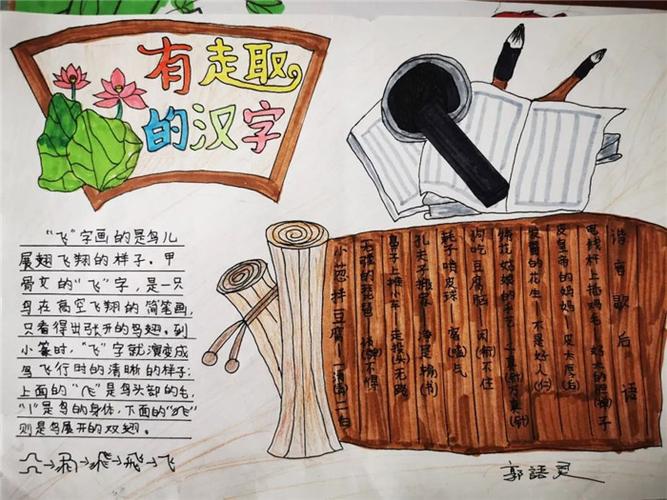 有趣
的汉字
"飞"字画的是鸟儿
展翅飞翔的样子。甲
骨文的"飞"字，是一只
鸟在高空飞翔的简笔画，
只看得出张开的鸟翅。到
小篆时，"飞"字就演变成
鸟飞行时的清晰的样子：
上面的"飞"是鸟头部的毛，
"丨"是鸟的身体，下面的
则是鸟展开的双翅。
飛→飞
谐音歇后语
电线杆上插鸡毛 好大的子
皮皇帝的妈妈—皮太厚(后)
的花生—不是好人(仁)
绣花姑娘的手艺—真(针)真(针)
狗吃豆腐脑 闲(衔)不住
耗子皮球 客(嗑)气
孔夫子搬家 净是输(书)
鼻子上推小车 走投无路
的琵琶—谈(弹)不得
小葱拌豆腐—一清二白
郭語灵